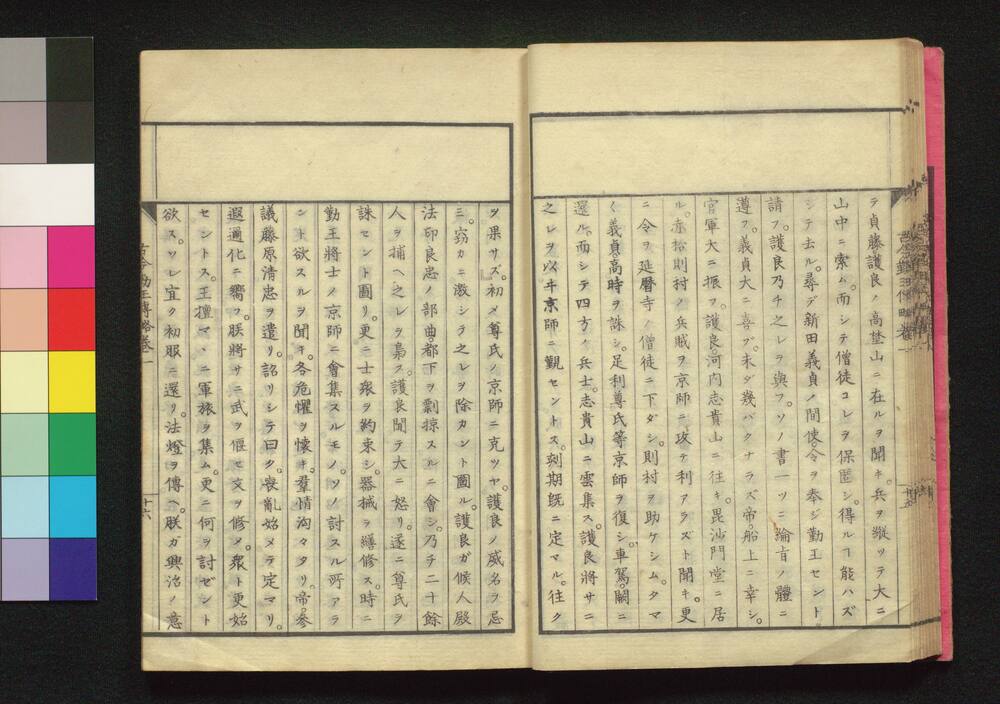 テ貞藤護良ノ高埜山ニ在ルヲ聞キ。兵ヲ縱ツテ大ニ
山中ニ索ム。而シテ僧徒コレヲ保匿シ。得ルヿ能ハズ
シテ去ル。尋デ新田義貞ノ間使。令ヲ奉ジ勤王セント
請フ。護良乃チ之レヲ與フ。ソノ書一ツニ綸旨ノ體ニ
遵フ。義貞大ニ喜ブ。未ダ幾バクナラズ帝。船上ニ幸シ。
官軍大ニ振フ。護良。河内志貴山ニ往キ。毘沙門堂ニ居
ル。赤松則村ノ兵賊ヲ京師ニ攻テ利アラズト聞キ。更
ニ令ヲ延暦寺ノ僧徒ニ下ダシ。則村ヲ助ケシム。タマ
〱義貞。高時ヲ誅シ。足利尊氏等京師ヲ復シ。車駕。闕ニ
還ル。而シテ四方ノ兵士。志貴山ニ雲集ス。護良將サニ
之レヲ以ヰ京師ニ覲セントス。刻期既ニ定マル。往ク
ヲ果サズ。初メ尊氏ノ京師ニ克ツヤ。護良ノ威名ヲ忌
ミ。窃カニ激シラ之レヲ除カント圖ル。護良ガ候人殿
法印良忠ノ部曲。都下ヲ剽掠スルニ會シ。乃チ二十餘
人ヲ捕ヘ。之レヲ梟ス。護良聞テ大ニ怒リ。遂ニ尊氏ヲ
誅セント圖リ。更ニ士衆ヲ約束シ。器械ヲ繕修ス。時ニ
勤王將士ノ京師ニ會集スルモノ。ソノ討スル所アラ
ント欲スルヲ聞キ。各危懼ヲ懷キ。羣情洶々タリ。帝。參
議藤原清忠ヲ遣リ。詔リシテ曰ク。喪亂始メテ定マリ。
遐邇化ニ嚮フ。朕將サニ武ヲ偃セ文ヲ修メ。衆ト更始
セントス。王擅マヽニ軍旅ヲ集ム。更ニ何ヲ討ゼント
欲ス。ソレ宜ク初服ニ還リ。法燈ヲ傳ヘ。朕ガ興治ノ意
古今勤王傳略卷一
十六